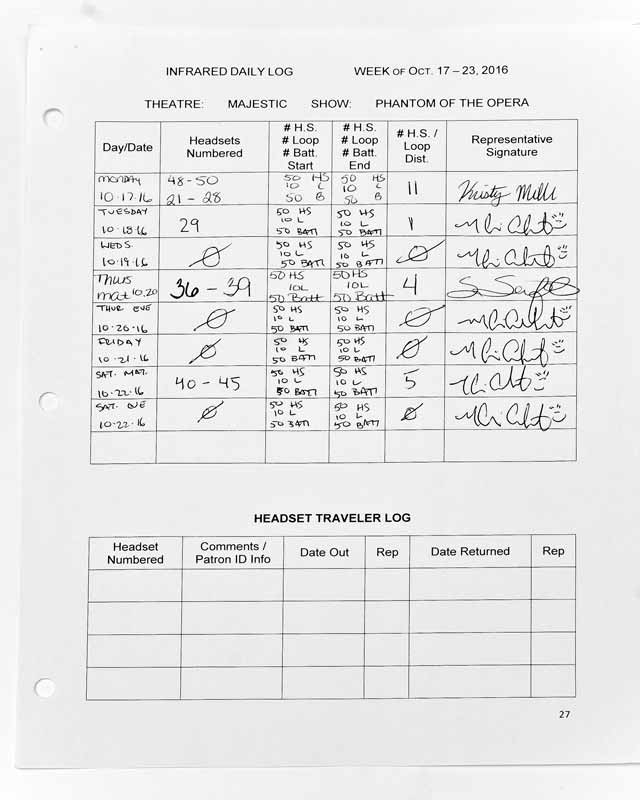 INFRARED DAILY LOG WEEK OF OCT. 17 – 23, 2016
THEATRE: MAJESTIC SHOW: PHANTOM OF THE OPERA
Day/Date Headsets Numbered # H.S. # Loop # Batt. Start # H.S. # Loop # Batt. End # H.S. / Loop Dist. Representative Signature
MONDAY 10-17-16 48-50 21-28 50 HS 10 L 50 B 50 HS 10 L 50 B 11 Kristy Mill
TUESDAY 10-18-16 29 50 HS 10 L 50 BATT 50 HS 10 L 50 BATT 1
WEDS. 10-19-16 Ø 50 HS 10 L 50 BATT 50 HS 10 L 50 BATT Ø
Thurs mat 10.20 36-39 50 HS 10L 50 Batt 50 HS 10L 50 Batt 4
THUR EVE 10-20-16 Ø 50 HS 10 L 50 BATT 50 HS 10 L 50 BATT Ø
FRIDAY 10-21-16 Ø 50 HS 10 L 50 BATT 50 HS 10 L 50 BATT Ø
SAT. MAT. 10-22-16 40-45 50 HS 10 L 50 BATT 50 HS 10 L 50 BATT 5
SAT. EVE 10-22-16 Ø 50 HS 10 L 50 BATT 50 HS 10 L 50 BATT Ø
HEADSET TRAVELER LOG
Headset Numbered Comments / Patron ID Info Date Out Rep Date Returned Rep
27